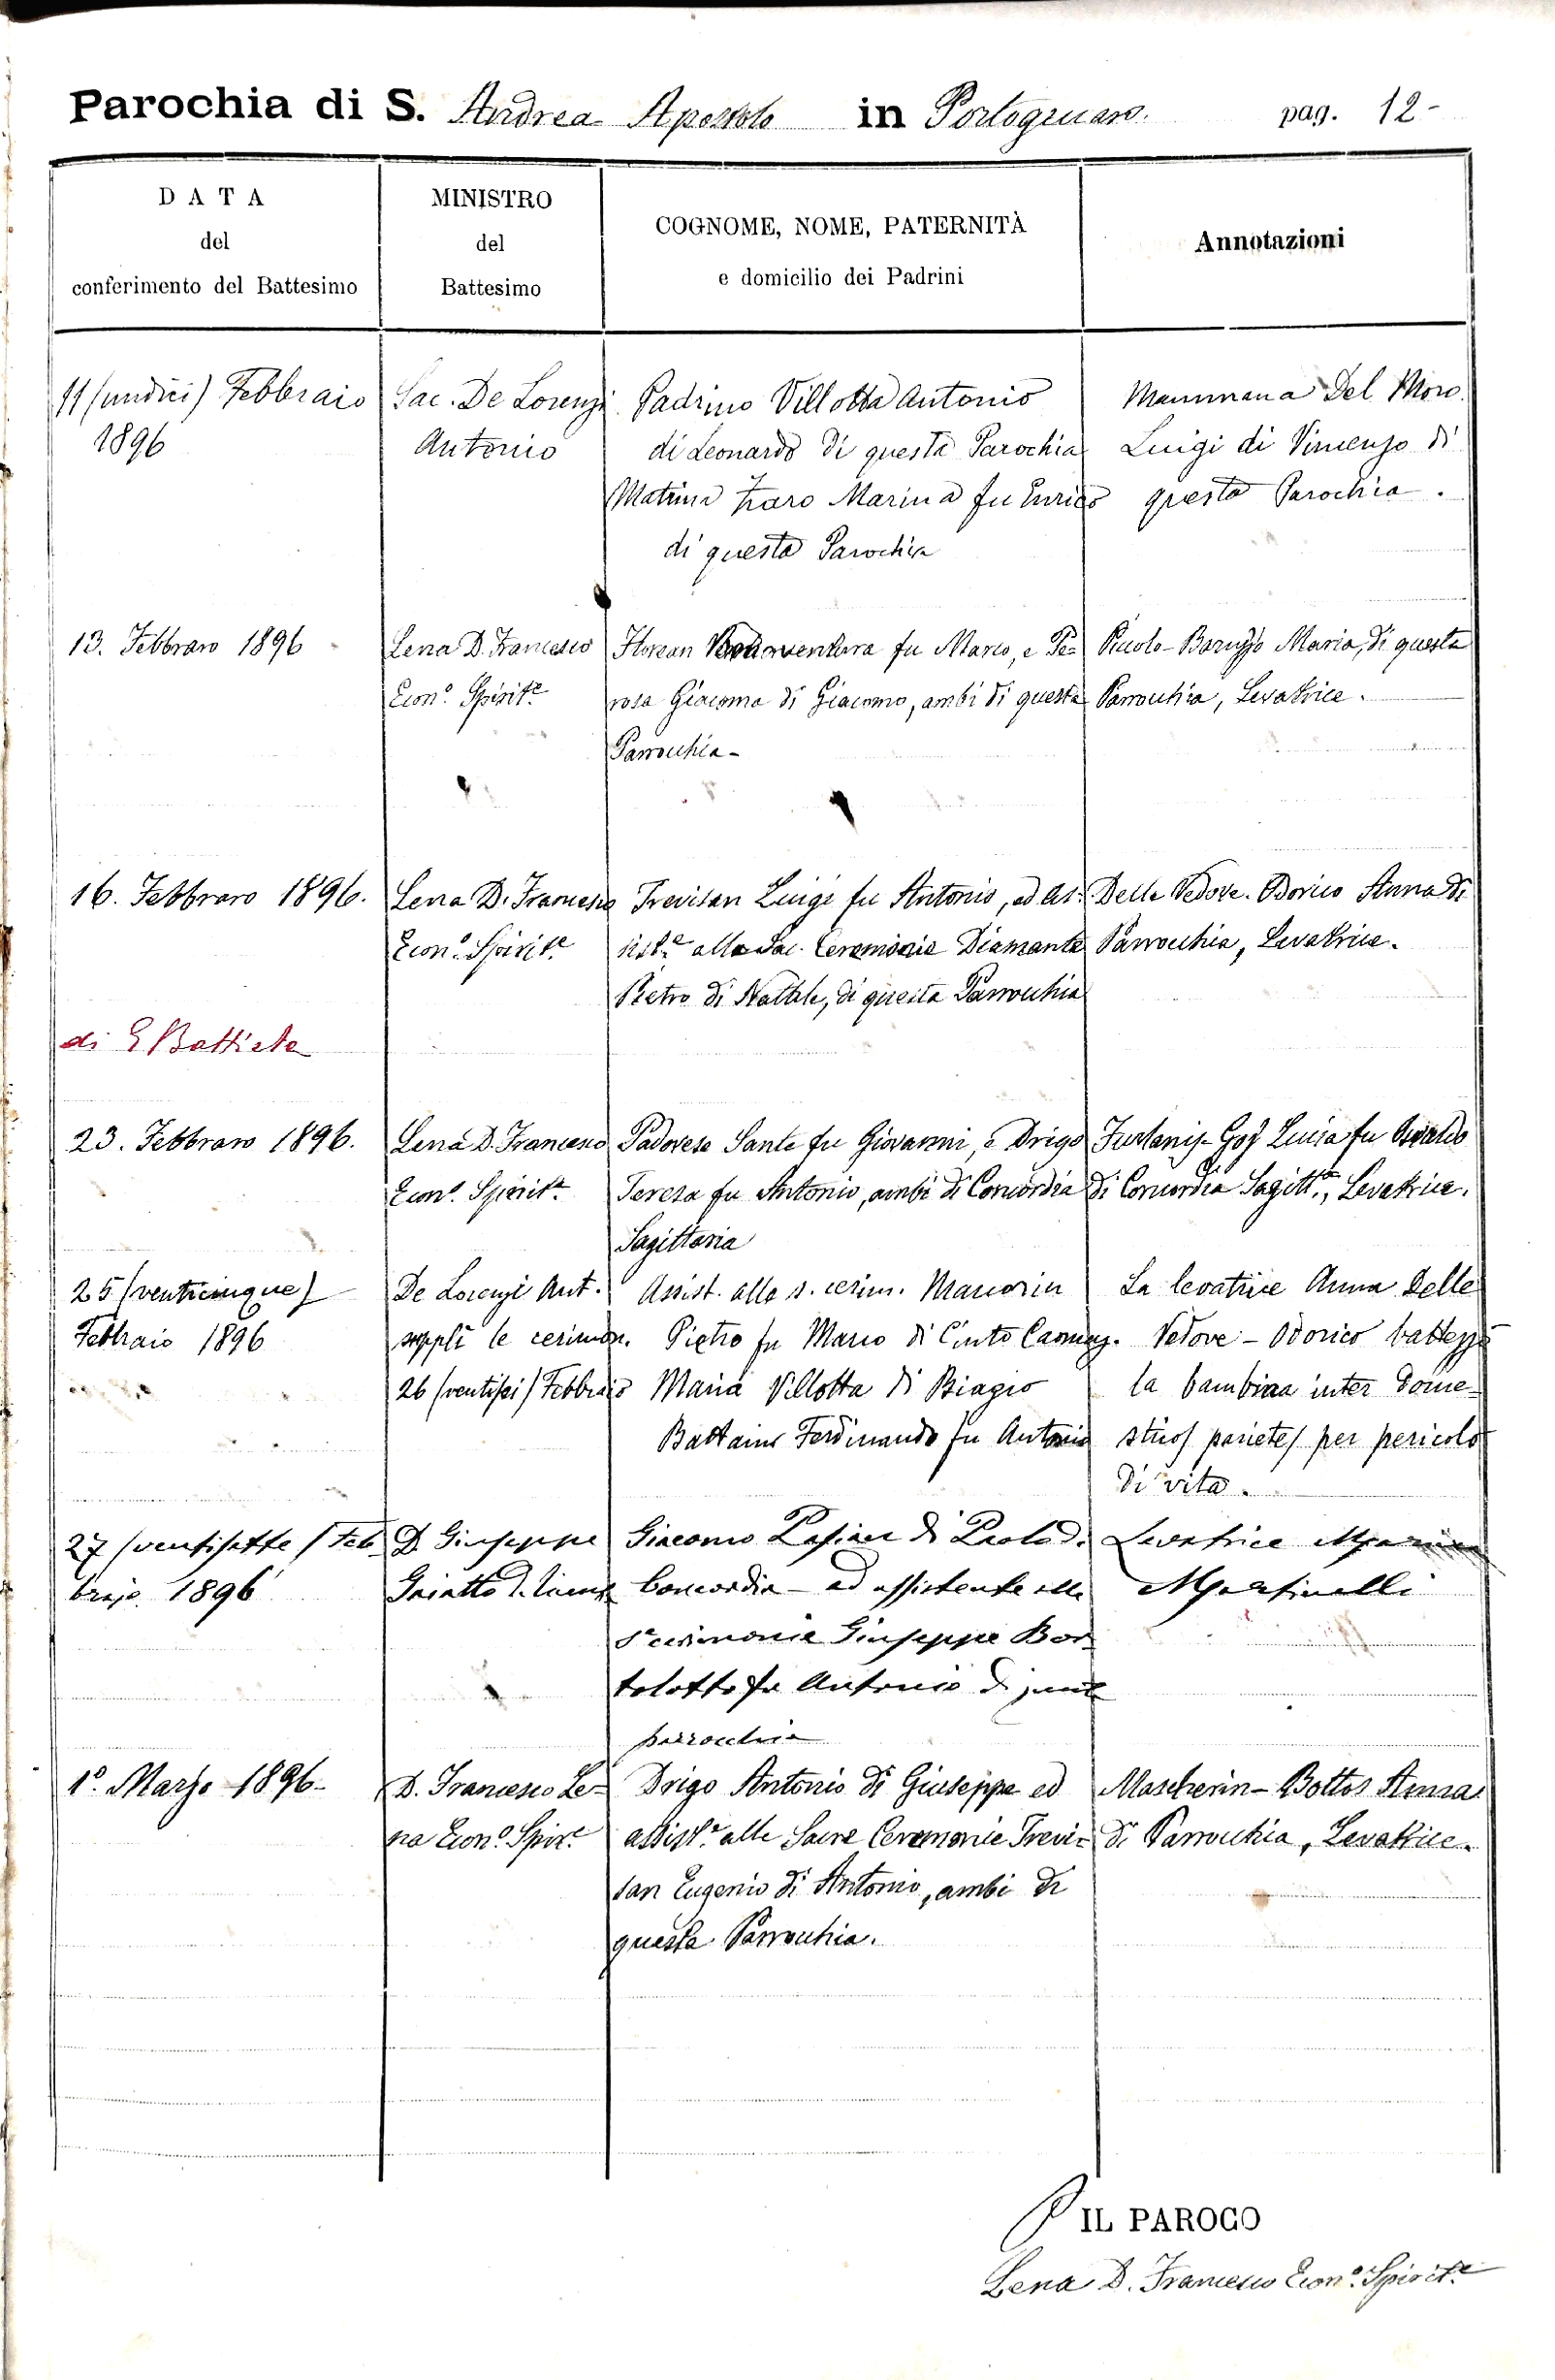 Parochia di S. Andrea Apostolo in Portogruaro. pag. 12-
DATA
del
conferimento del Battesimo
MINISTRO
del
Battesimo
COGNOME, NOME, PATERNITÀ
e domicilio dei Padrini
Annotazioni
11 (undici) Febbraio
1896
Sac. De Lorenzi
Antonio
Padrino Villotta Antonio
di Leonardo di questa Parochia
Matrina Zaro Marina fu Enrico
di questa Parochia
Mammana Del Moro
Luigi di Vincenzo di
questa Parochia.
13. Febbraro 1896
Lena D. Francesco
Econ.º Spirit.e
Florean Bonaventura fu Marco, e Pe=
rosa Giacoma di Giacomo, ambi di questa
Parrocchia-
Piccolo-Baruzzo Maria, di questa
Parrocchia, Levatrice.
16. Febbraro 1896.
Lena D. Francesco
Econ.º Spirit.e
Trevisan Luigi fu Antonio, ed As=
sist.e alle Sac. Ceremonie Diamante
Pietro di Natale, di questa Parrocchia
Delle Vedove-Odorico Anna di
Parrocchia, Levatrice.
di G Battista
23. Febbraro 1896.
Lena D. Francesco
Econ.º Spirit.e
Padovese Sante fu Giovanni, e Drigo
Teresa fu Antonio, ambi di Concordia
Sagittaria
Furlanis- Luicia fu Osvaldo
di Concordia Sagitt.a, Levatrice.
25 (venticinque)
Febbraio 1896
De Lorenzi Ant.
supplì le cerimon.
26 (ventisei) Febbraio
Assist. alle s. cerim. Marcorin
Pietro fu Marco di Cinto Caomag.
Maria Villotta di Biagio
Battaino Ferdinando fu Antonio
La levatrice Anna Delle
Vedove-Odorico battezzò
la bambina inter dome-
sticos parietes per pericolo
di vita.
27 (ventisette) Feb
brajo 1896
D. Giuseppe
Gaiatto
Giacomo di Paolo d.
Concordia - ed assistente alle
S.e cerimonie Giuseppe Bor
tolotto fu Antonio di
parrocchia
Levatrice
Martinelli
1º. Marzo 1896-
D. Francesco Le=
na Econ.º Spir.e
Drigo Antonio di Giuseppe ed
assist.e alle Sacre Ceremonie Trevi=
san Eugenio di Antonio, ambi di
questa Parrocchia.
Mascherin-Bottos Anna
di Parrocchia, Levatrice.
IL PAROCO
Lena D. Francesco Econ.º Spirit.e